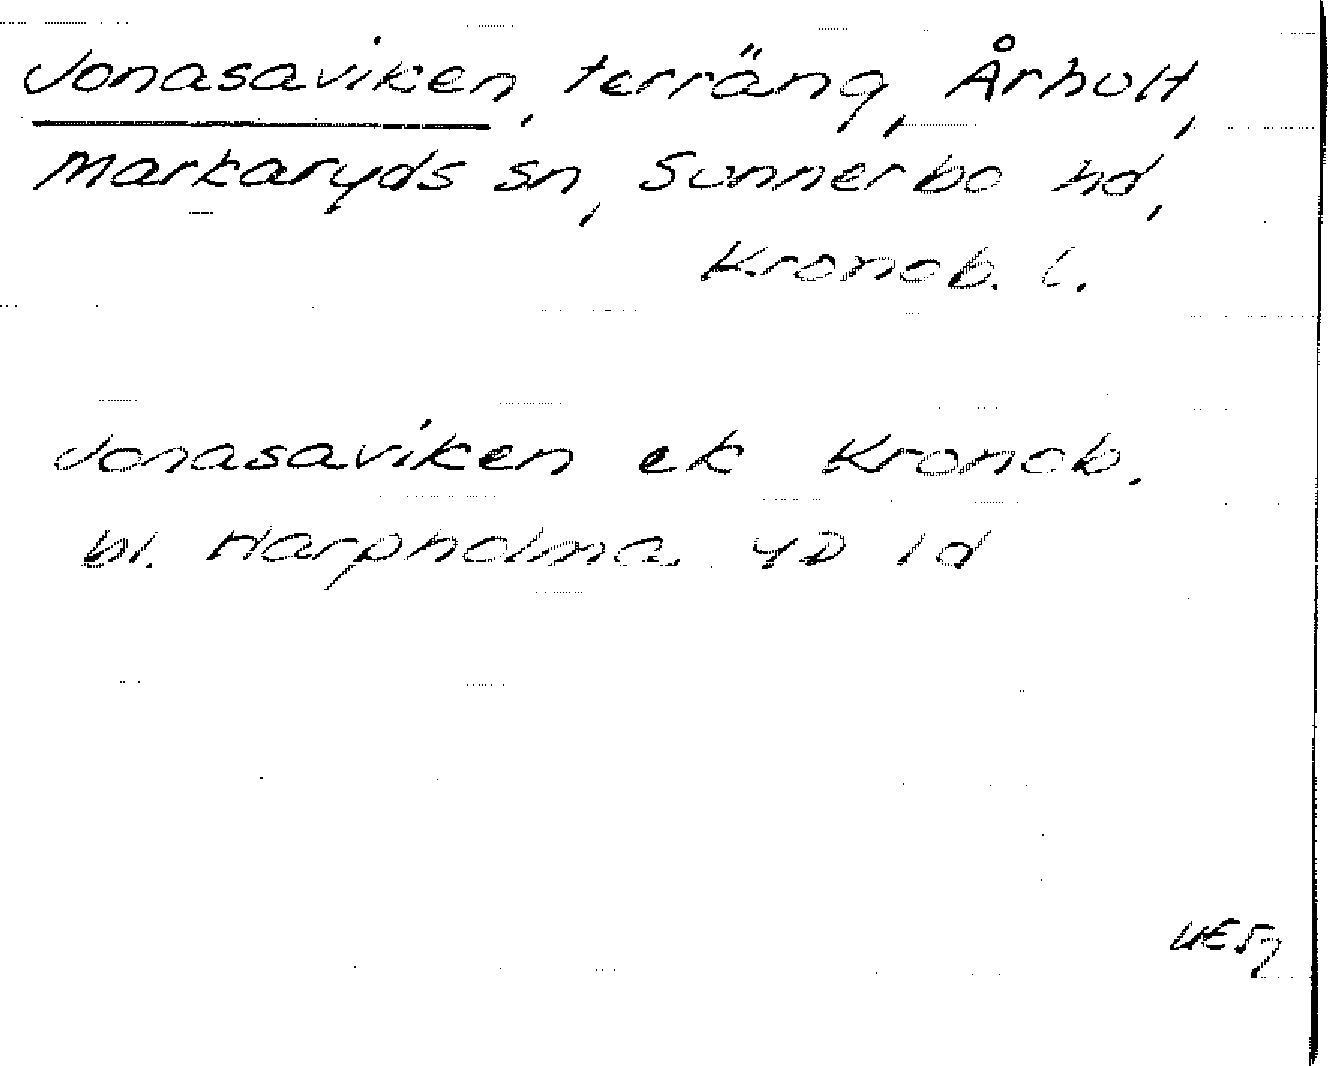 Jonasaviken, terräng, Århult,
Markaryds sn, Sunnerbo hd,
Kronob. l.
Jonasaviken ek Kronob.
bl. Harpholma 4D 1d